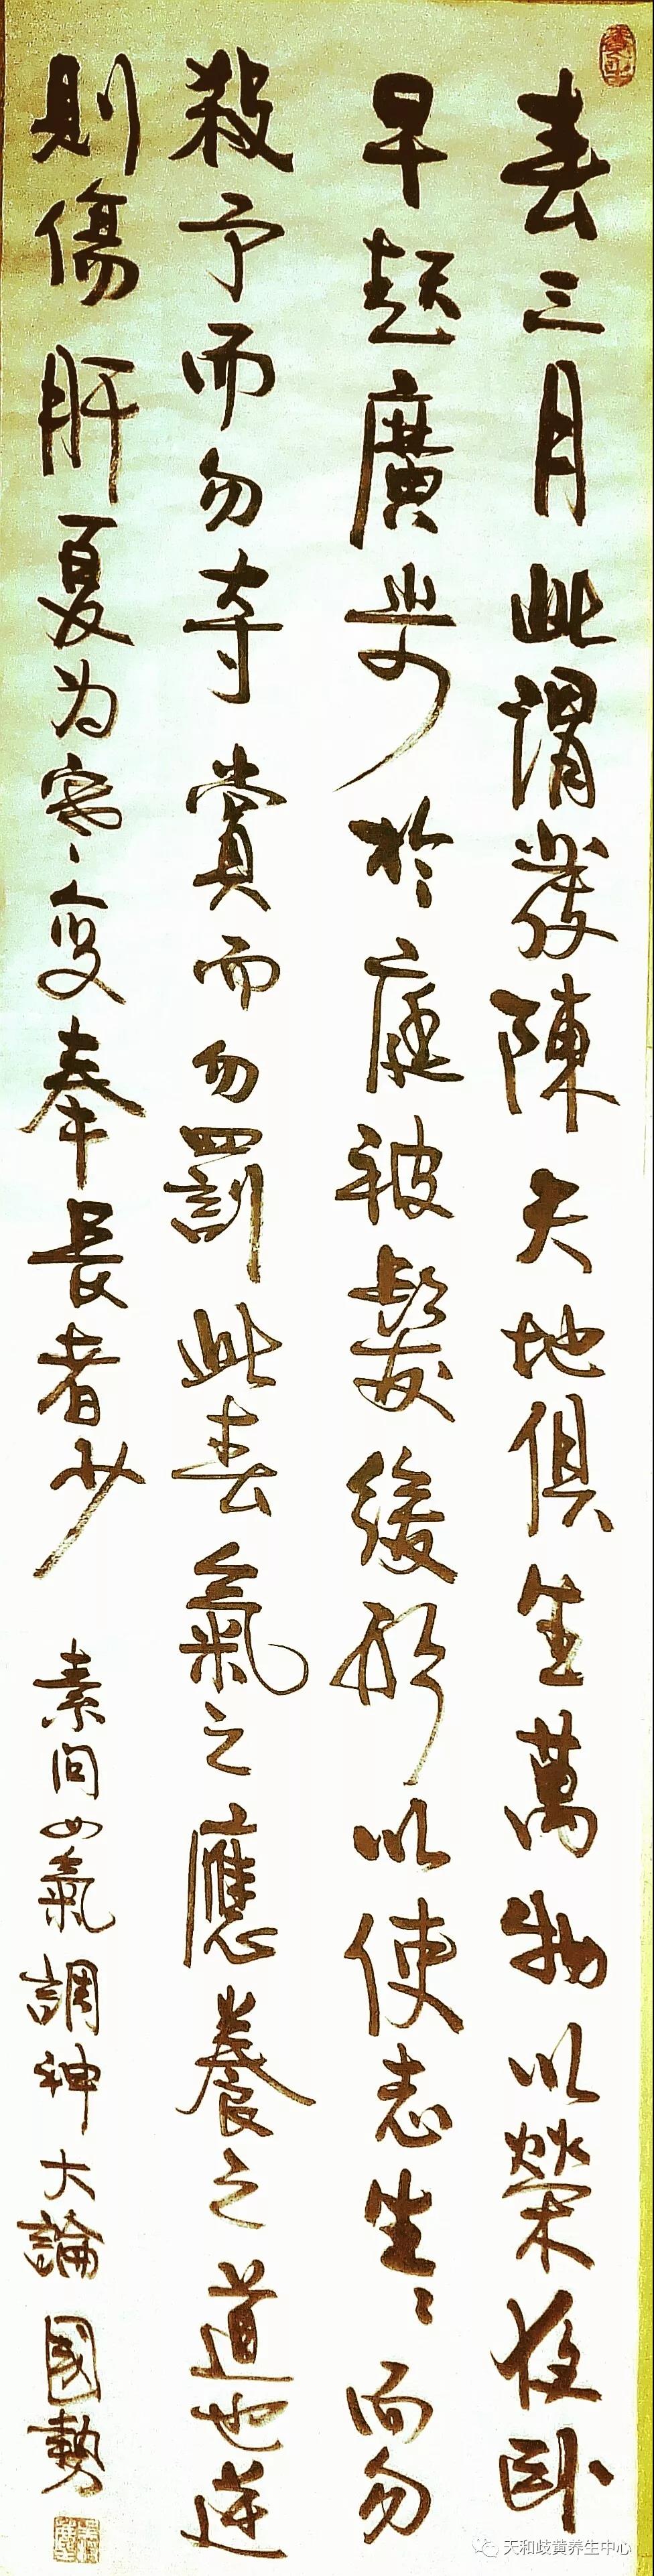 春三月此謂發陳天地俱生萬物以榮夜卧
早起廣步於庭被髮緩形以使志生〻而勿
殺予而勿奪賞而勿罰此春氣之應養之道也逆
則傷肝夏为寒變奉長者少
素問四氣調神大論 國勢
天和歧黄养生中心